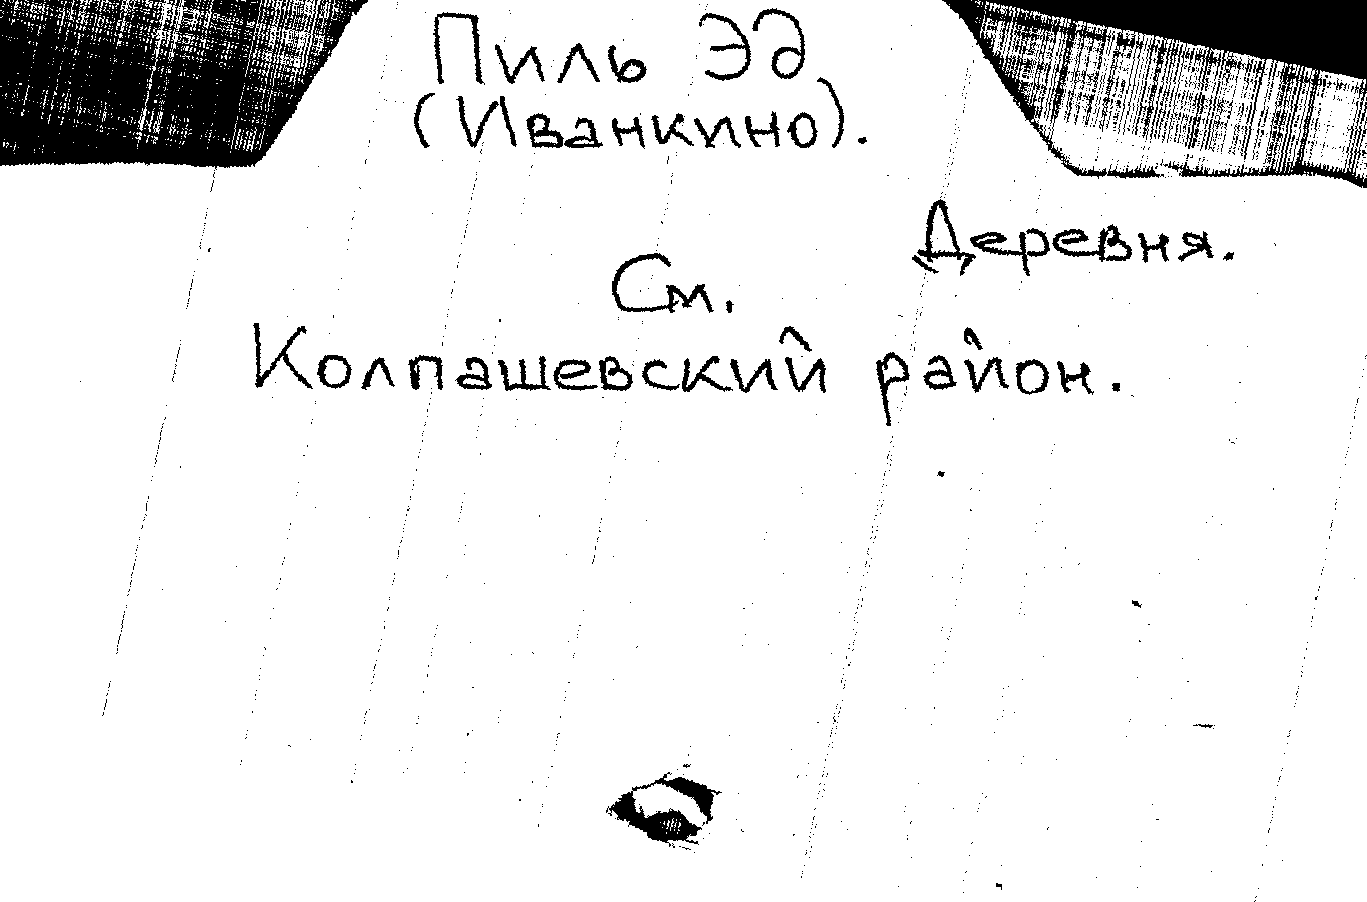 Пиль Эд
(Иванкино).
Деревня.
См.
Колпашевский район.